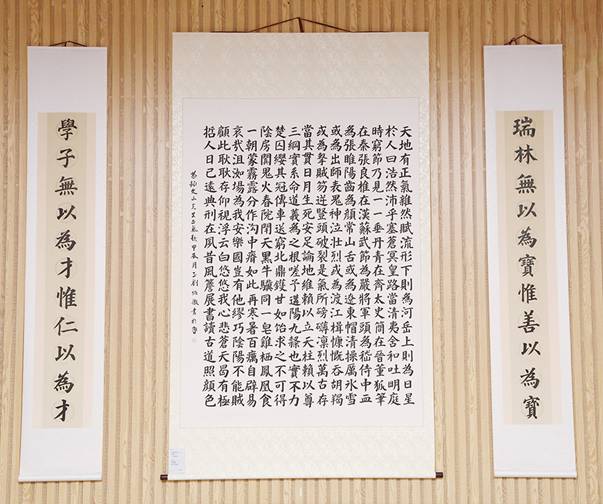 瑞林無以為寶惟善以為寶
天地有正氣雜然賦流形下則為河岳上則為日星
於人曰浩然沛乎塞蒼冥皇路當清夷含和吐明庭
時窮節乃見一一垂丹青在齊太史簡在晉董狐筆
在秦張良椎在漢蘇武節為嚴將軍頭為嵇侍中血
為張睢陽齒為顏常山舌或為遼東帽清操厲冰雪
或為出師表鬼神泣壯烈或為渡江楫慷慨吞胡羯
或為擊賊笏逆豎頭破裂是氣所磅礴凜烈萬古存
當其貫日月生死安足論地維賴以立天柱賴以尊
三綱實系命道義為之根嗟予遘陽九隸也實不力
楚囚纓其冠傳車送窮北鼎鑊甘如飴求之不可得
陰房闃鬼火春院閉天黑牛驥同一皂雞棲鳳凰食
一朝蒙霧露分作溝中瘠如此再寒暑百癘自辟易
哀哉沮洳場為我安樂國豈有他繆巧陰陽不能賊
顧此耿耿存仰視浮云白悠悠我心悲蒼天曷有極
哲人日已遠典刑在夙昔風簷展書讀古道照顏色
文山先生正氣歌甲辰
學子無以為才惟仁以為才